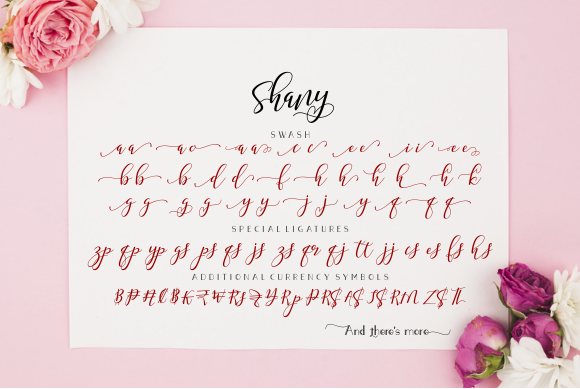 Shany
SWASH
aa ao aa cc ee ii ae
bb b d d f h h h h h k
g g g g y y j j y q q
SPECIAL LIGATURES
zp qp yp gs ps qs js zs qr qj tt jj cs es fs hs
ADDITIONAL CURRENCY SYMBOLS
Rp
And there's more